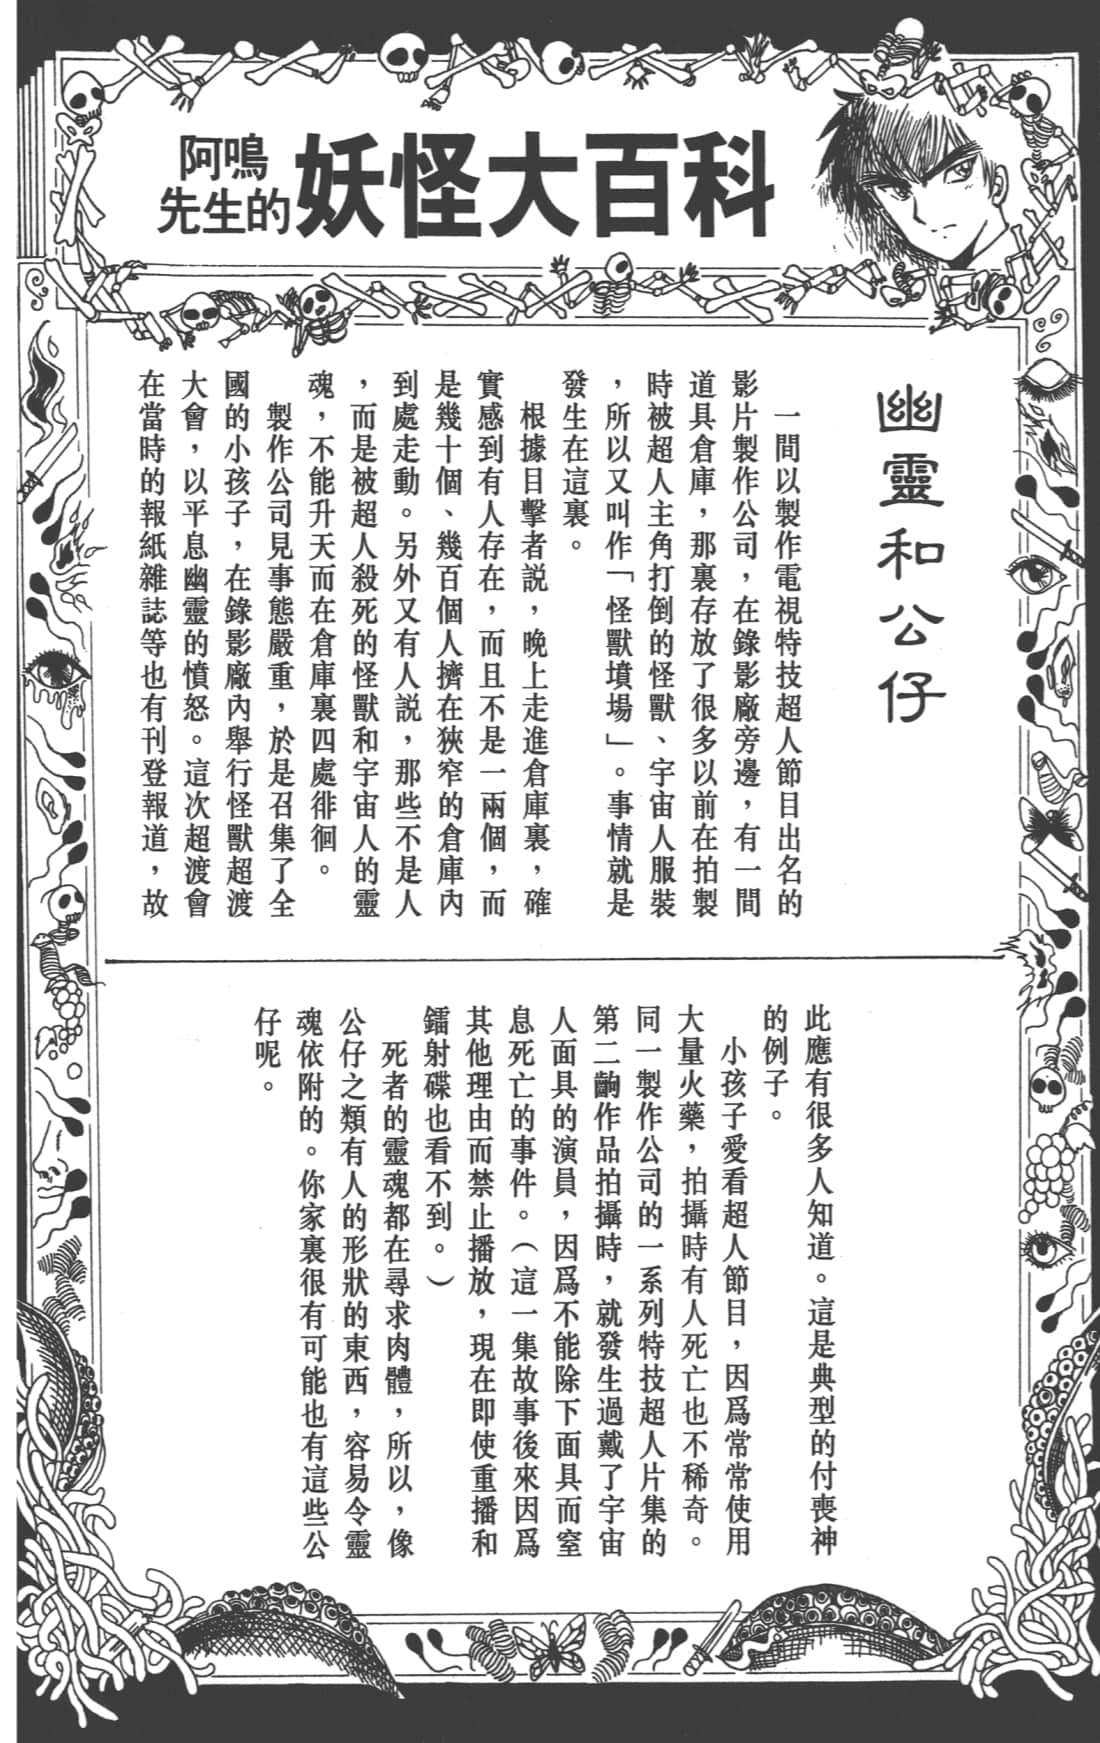 阿鳴
先生的
妖怪大百科
幽靈和公仔
一間以製作電視特技超人節目出名的
影片製作公司，在錄影廠旁邊，有一間
道具倉庫，那裏存放了很多以前在拍製
時被超人主角打倒的怪獸、宇宙人服裝
，所以又叫作「怪獸墳場」。事情就是
發生在這裏。
根據目擊者說，晚上走進倉庫裏，確
實感到有人存在，而且不是一兩個，而
是幾十個、幾百個人擠在狹窄的倉庫內
到處走動。另外又有人說，那些不是人
，而是被超人殺死的怪獸和宇宙人的靈
魂，不能升天而在倉庫裏四處徘徊。
製作公司見事態嚴重，於是召集了全
國的小孩子，在錄影廠內舉行怪獸超渡
大會，以平息幽靈的憤怒。這次超渡會
在當時的報紙雜誌等也有刊登報道，故
此應有很多人知道。這是典型的付喪神
的例子。
小孩子愛看超人節目，因爲常常使用
大量火藥，拍攝時有人死亡也不稀奇。
同一製作公司的一系列特技超人片集的
第二齣作品拍攝時，就發生過戴了宇宙
人面具的演員，因爲不能除下面具而窒
息死亡的事件。（這一集故事後來因爲
其他理由而禁止播放，現在即使重播和
鐳射碟也看不到。）
死者的靈魂都在尋求肉體，所以，像
公仔之類有人的形狀的東西，容易令靈
魂依附的。你家裏很有可能也有這些公
仔呢。